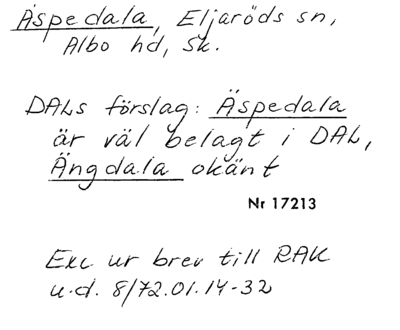 Äspedala, Eljaröds sn,
Albo hd, Sk.
DALs förslag: Äspedala
är väl belagt i DAL,
Ängdala okänt
Nr 17213
Exc ur brev till RAK
u.d. 8/72.01.14-32